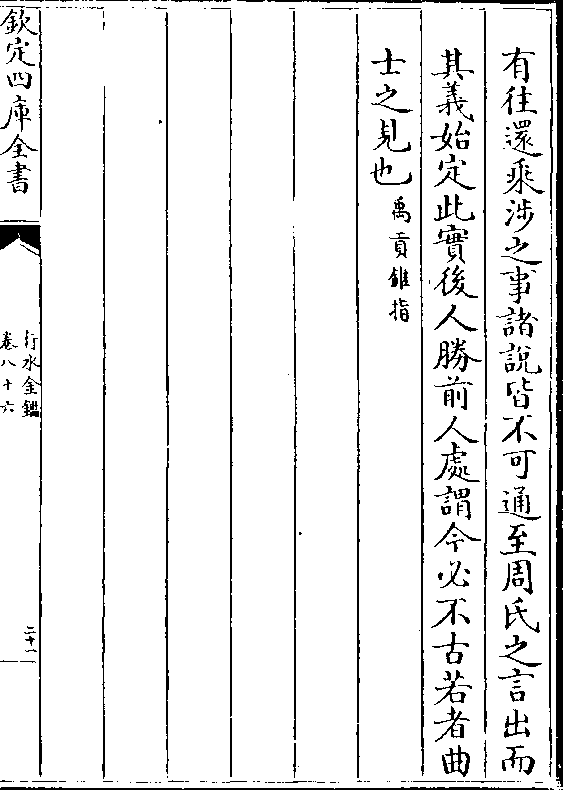 有往還乘涉之事諸說皆不可通至周氏之言出而
其義始定此實後人勝前人處謂今必不古若者曲
士之見也禹貢錐指
欽定四庫全書
行水金鑑
卷八十六
二十一